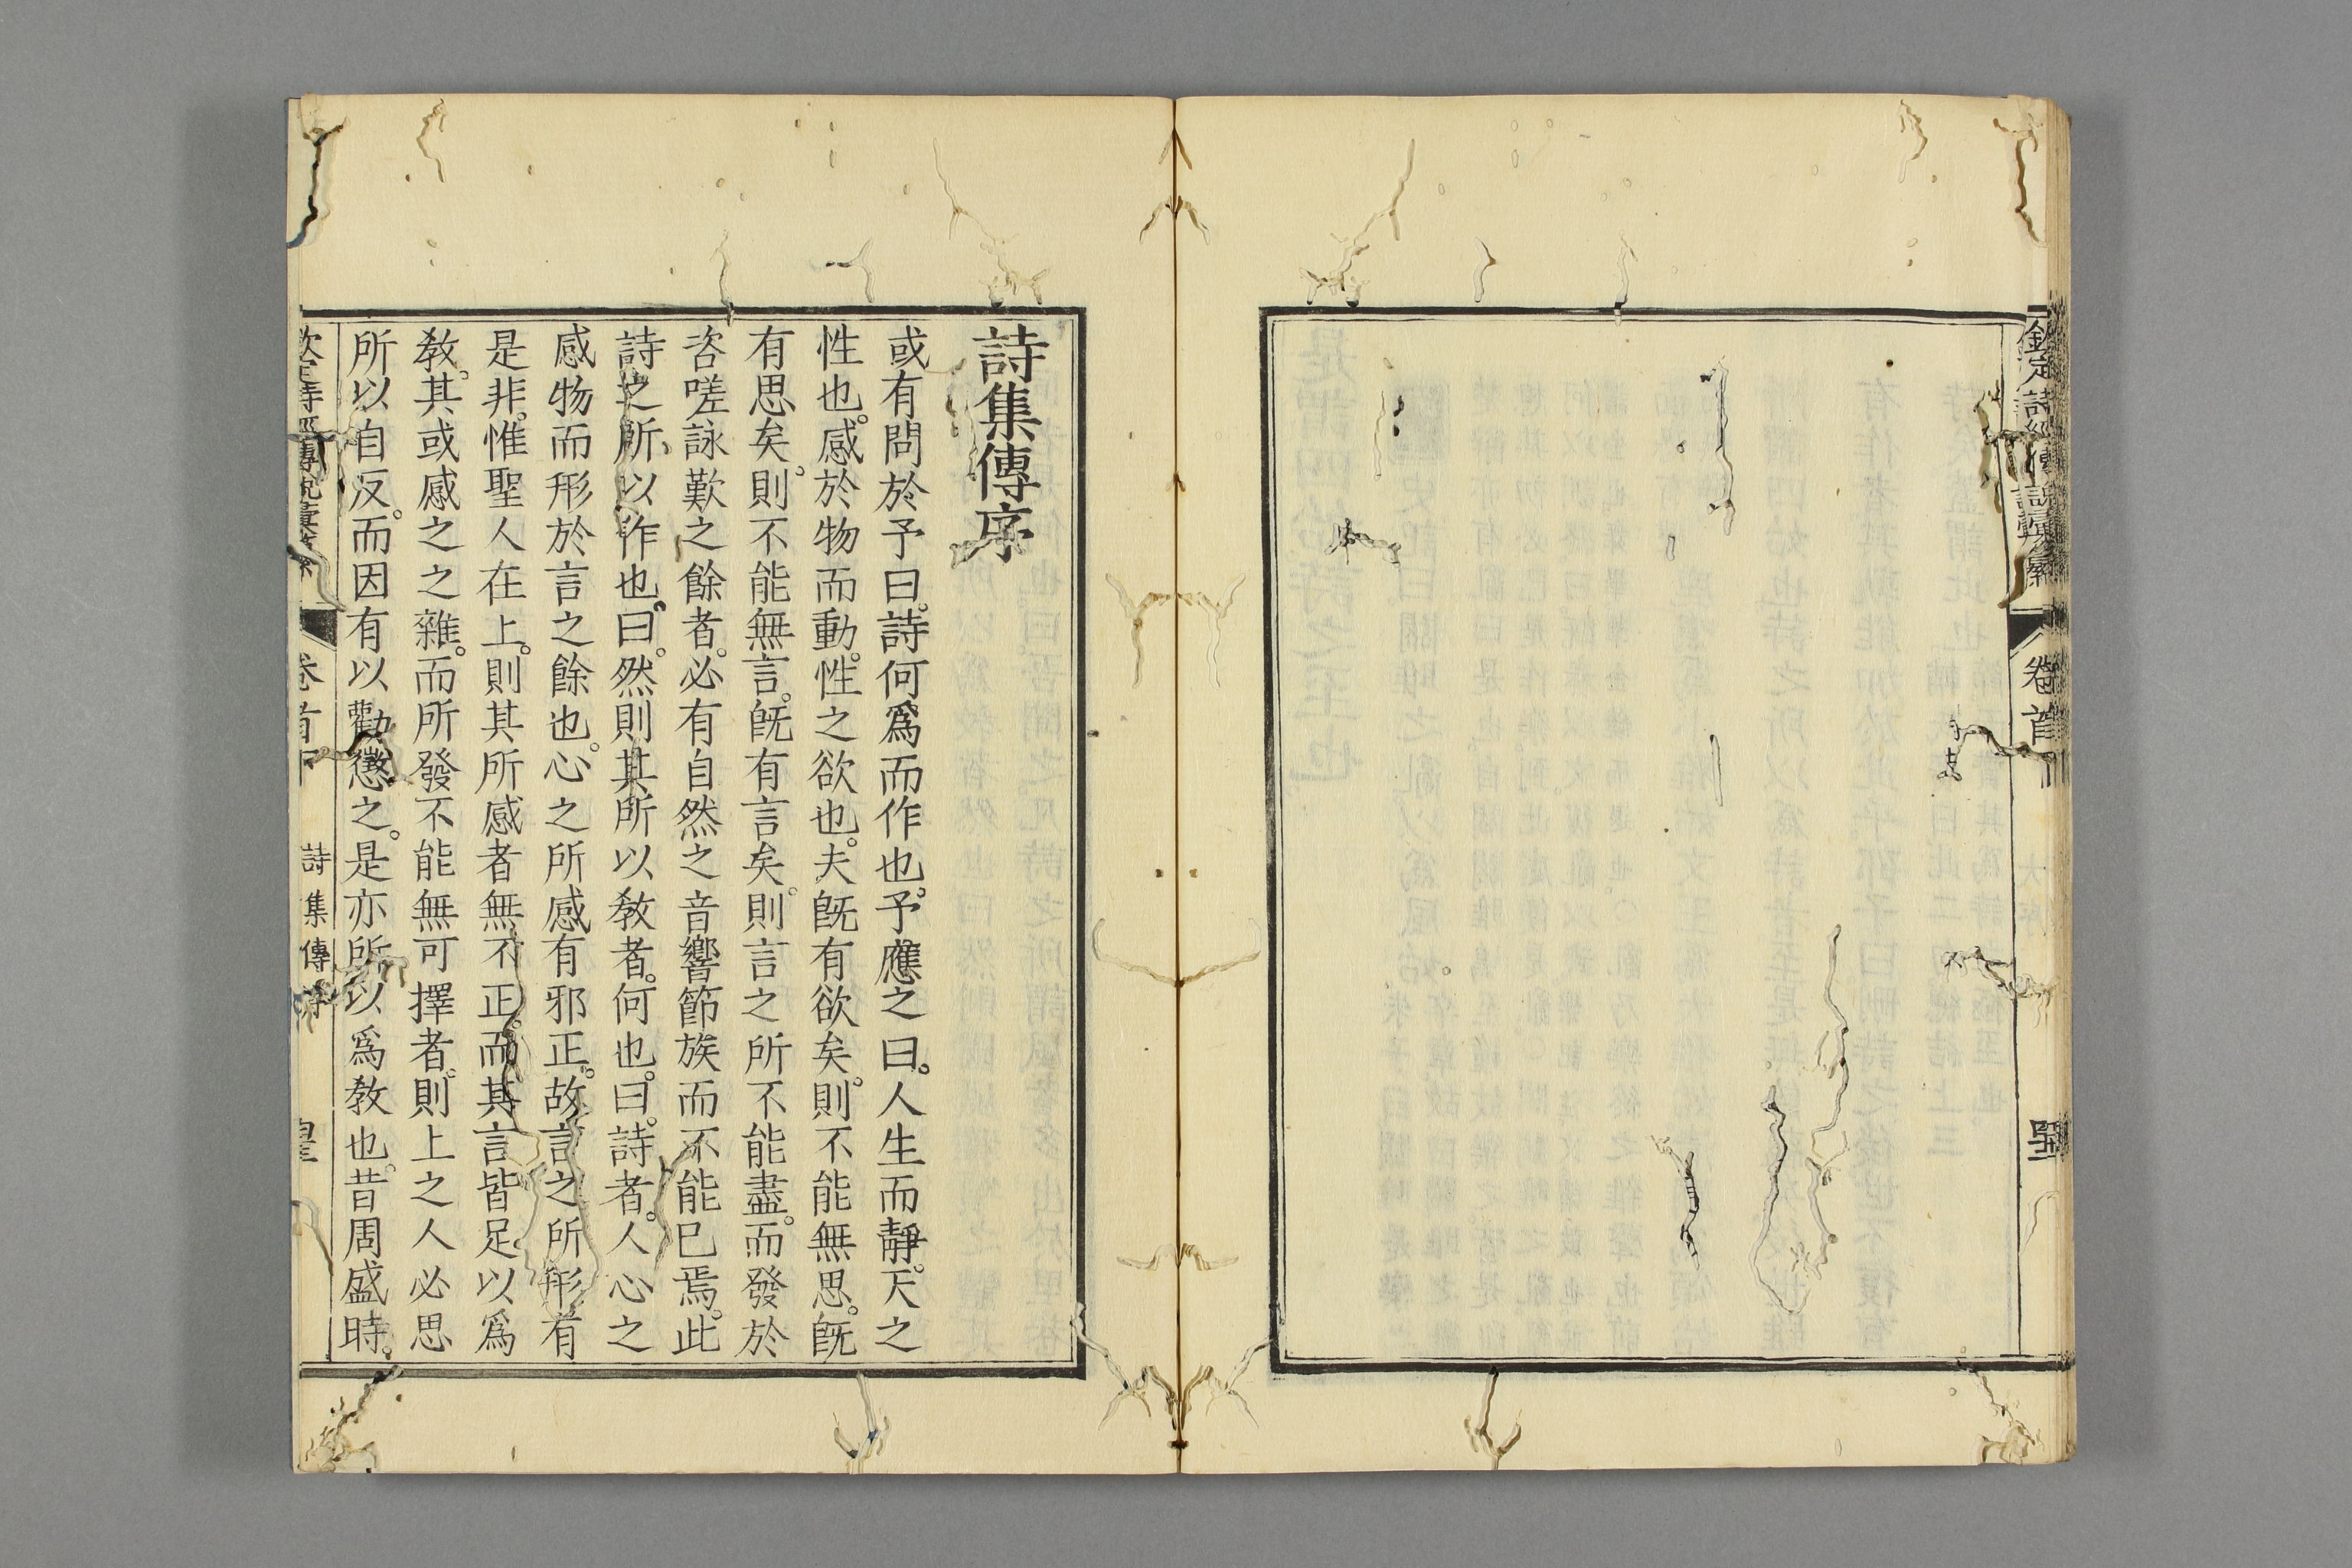 欽定詩經傳說彙纂
卷首
詩集傳序
或有問於予曰。詩何爲而作也。予應之曰。人生而靜。天之
性也。感於物而動。性之欲也。夫旣有欲矣。則不能無思。旣
有思矣。則不能無言。旣有言矣。則言之所不能盡。而發於
咨嗟詠歎之餘者。必有自然之音響節族而不能已焉。此
詩之所以作也。曰。然則其所以敎者。何也。曰。詩者。人心之
感物而形於言之餘也。心之所感有邪正。故言之所形有
是非。惟聖人在上。則其所感者無不正。而其言皆足以爲
敎。其或感之之雜。而所發不能無可擇者。則上之人必思
所以自反。而因有以勸懲之。是亦所以爲敎也。昔周盛時。
卷首下
詩集傳序